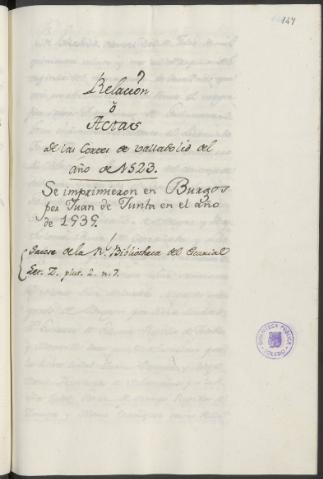 147
Relacion
ò
Actas
de las Cortes de Valladolid del
año de 1523.
Se imprimieron en Burgos
por Juan de Junta en el año
de 1535.
de la Rl. Bibliotheca del Escurial
Let. Z. plut. 2. n. 7.
BIBLIOTECA PUBLICA
TOLEDO